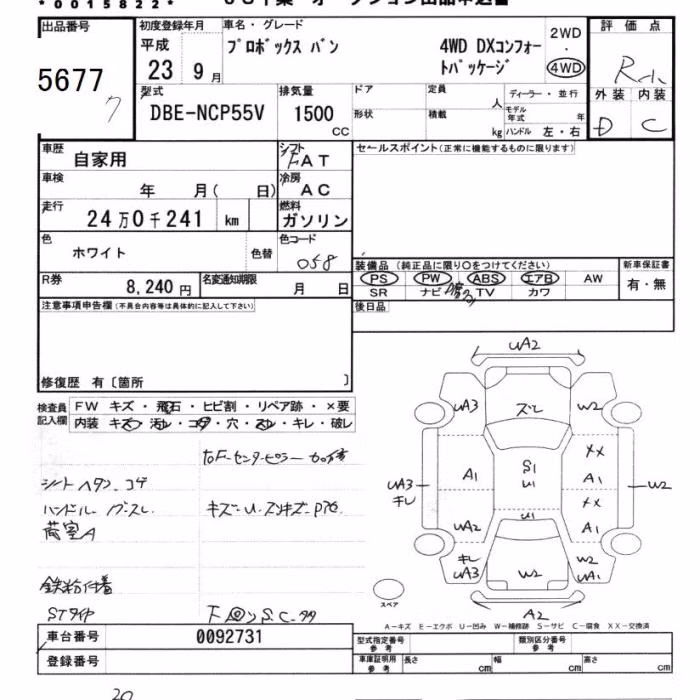 *0015822*
出品番号
5677
7
初度登録年月
平成
23 9月
車名・グレード
プロボックス バン
4WD DXコンフォー
トパッケージ
2WD
・
4WD
評価点
外装 内装
D C
型式
DBE-NCP55V
排気量
1500
CC
ドア
形状
定員
人
積載
kg
ディーラー・並行
モデル年式
年
ハンドル 左・右
車歴
自家用
シフト
FAT
セールスポイント(正常に機能するものに限ります)
車検
年 月( 日)
冷房
AC
走行
24万0千241 km
燃料
ガソリン
色
ホワイト
色替
色コード
058
装備品(純正品に限り○をつけてください)
PS PW ABS エアB AW
SR ナビ TV カワ
新車保証書
有・無
R券
8,240円
名変通知期限
月 日
後日品
注意事項申告欄(不具合内容等は具体的に記入して下さい)
修復歴 有〔箇所 〕
検査員記入欄
FW キズ・飛石・ヒビ割・リペア跡・×要
内装 キズ・汚レ・コゲ・穴・スレ・キレ・破レ
シート ヘタリ、コゲ
ハンドル
荷室A
鉄粉付着
UA2
UA3
ズレ
W2
XX
A1
S1
U1
A1
UA3
キレ
XX
W2
UA2
U1
A1
キレ
UA3
W2
W2
UA1
A2
スペア
A-キズ E-エクボ U-凹み W-補修跡 S-サビ C-腐食 XX-交換済
車台番号
0092731
登録番号
型式指定番号
参考
類別区分番号
参考
車庫証明用
参考
長さ
cm
幅
cm
高さ
cm
20